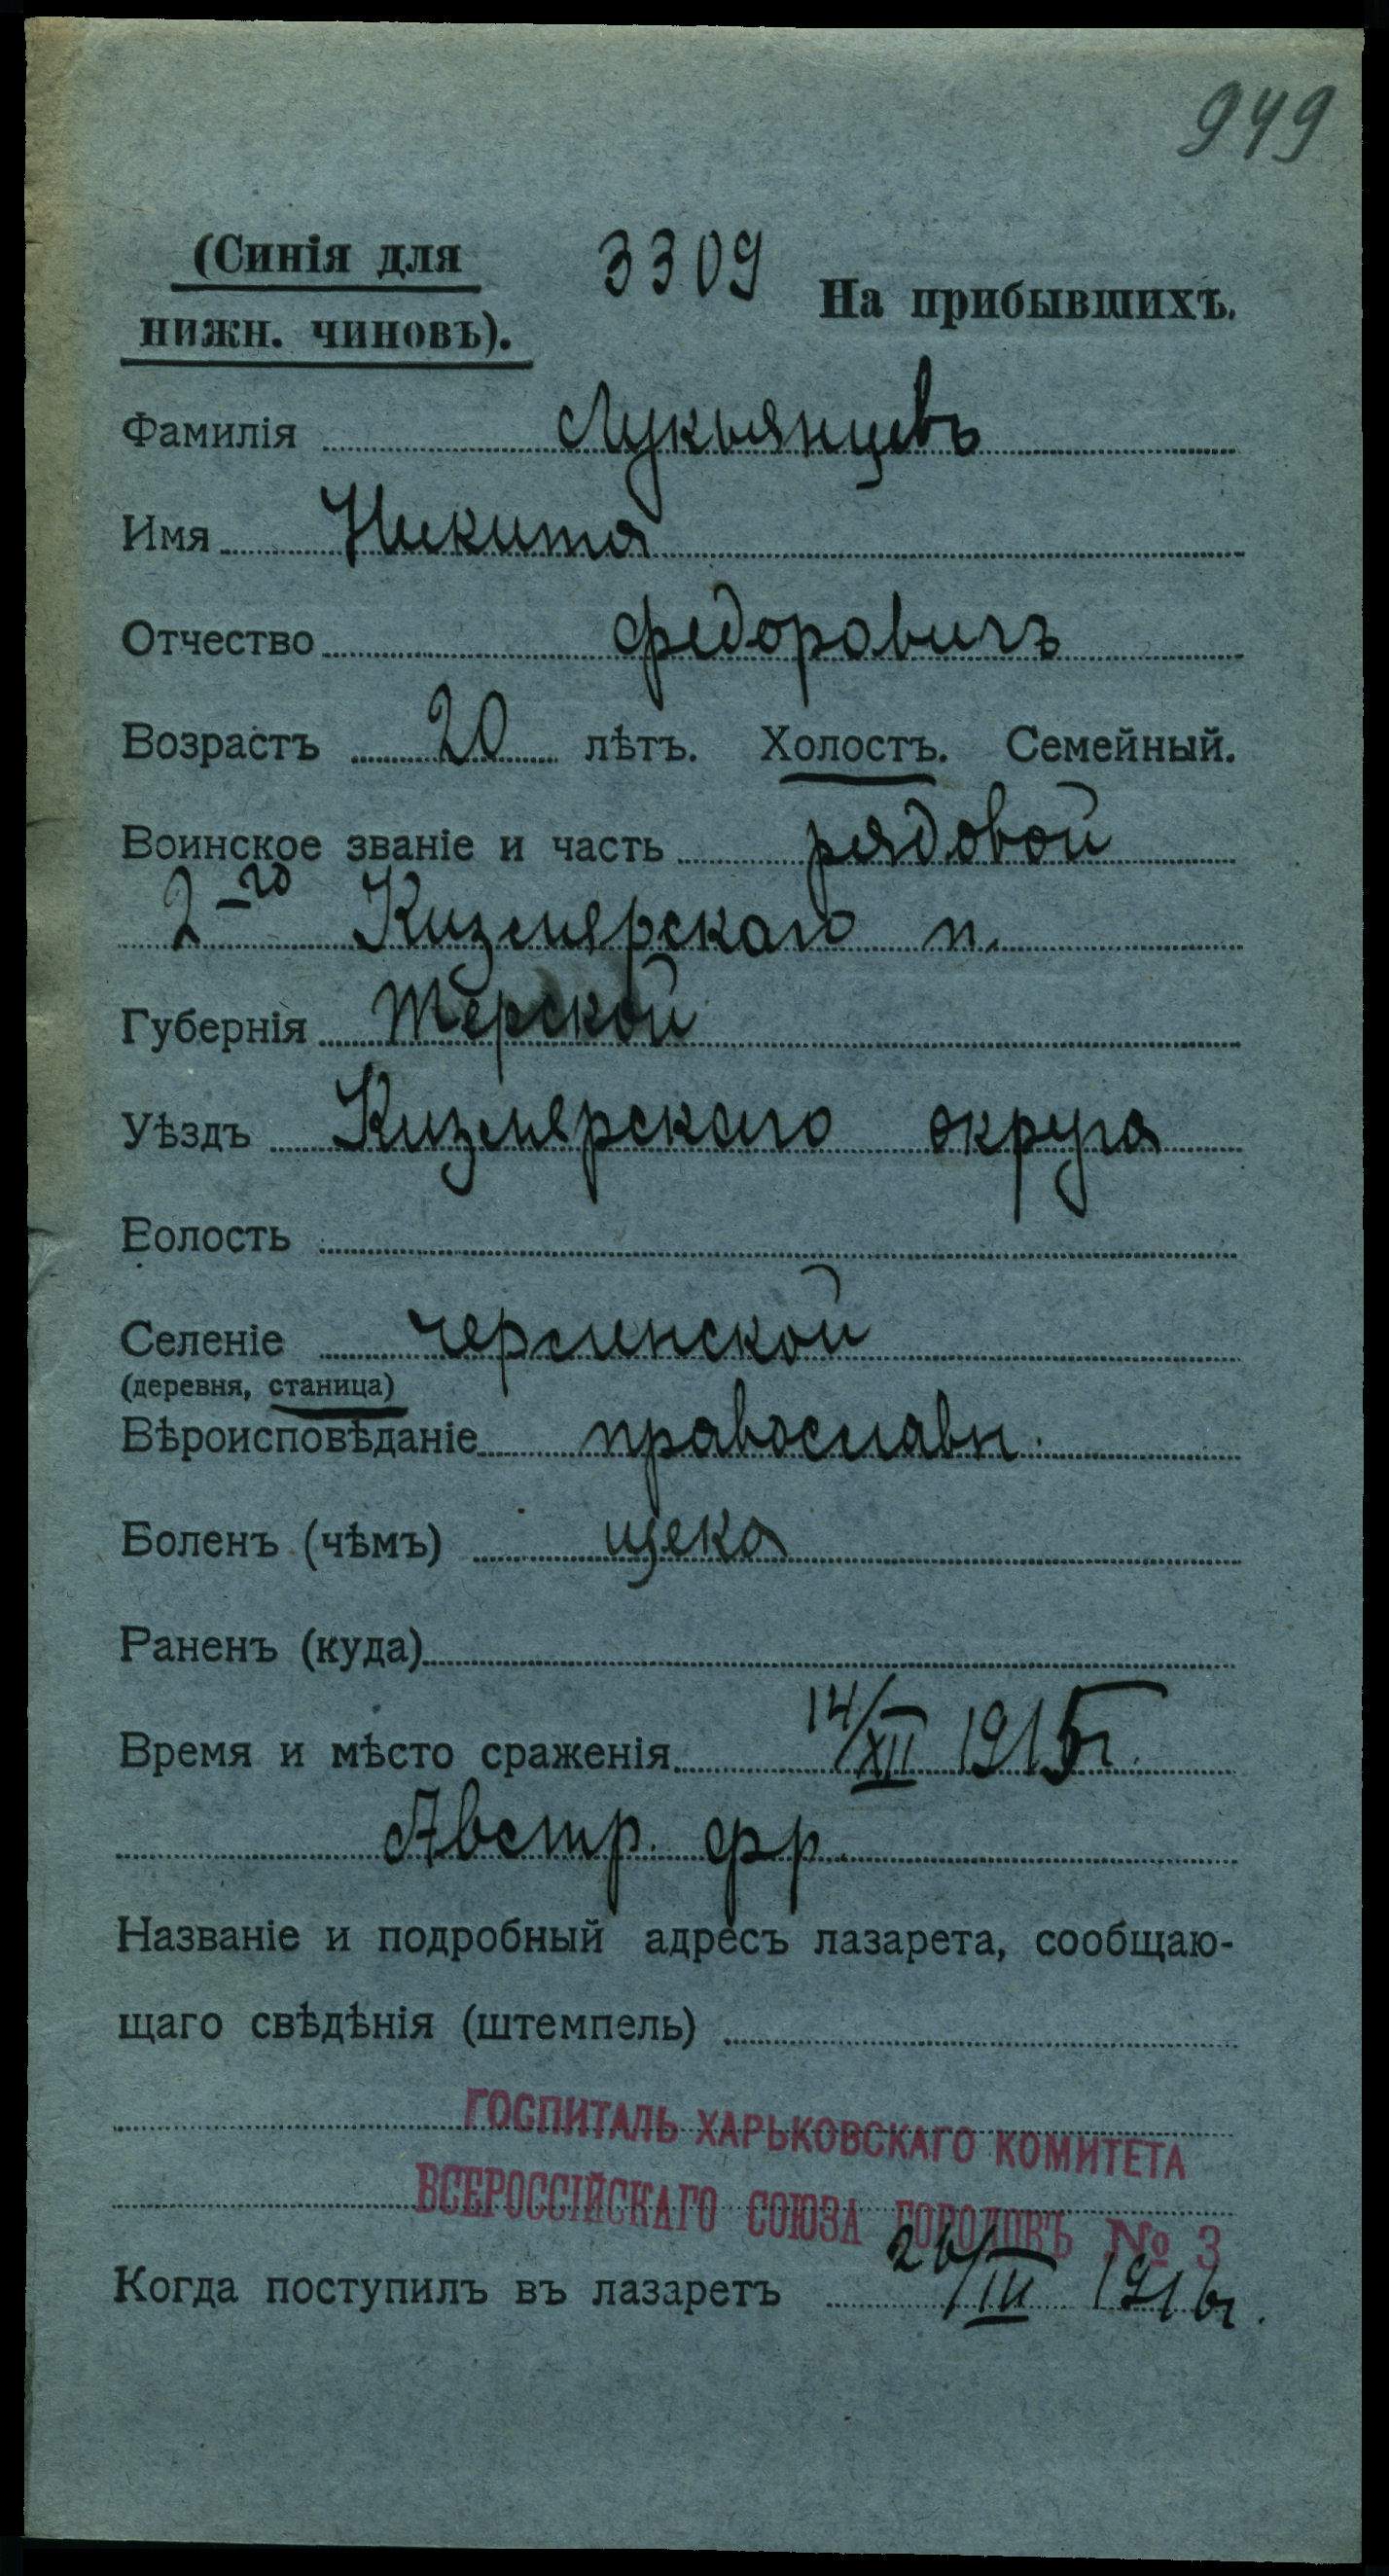 949
(Синія для
3309
На прибывшихъ.
нижн. чиновъ).
Фамилія Лукьянцевъ
Имя Никита
Отчество Федоровичъ
Возрастъ 20 лѣтъ. Холостъ. Семейный.
Воинское званіе и часть рядовой
2-го Кизлярскаго п.
Губернія Терской
Уѣздъ Кизлярскаго округа
Волость
Селеніе черленской
(деревня, станица)
Вѣроисповѣданіе православн.
Боленъ (чѣмъ) щека
Раненъ (куда)
Время и мѣсто сраженія 14/XII 1915г.
Австр. фр.
Названіе и подробный адресъ лазарета, сообщаю-
щаго свѣдѣнія (штемпель)
ГОСПИТАЛЬ ХАРЬКОВСКАГО КОМИТЕТА
ВСЕРОССІЙСКАГО СОЮЗА ГОРОДОВЪ № 3
Когда поступилъ въ лазаретъ 26/III 1916г.